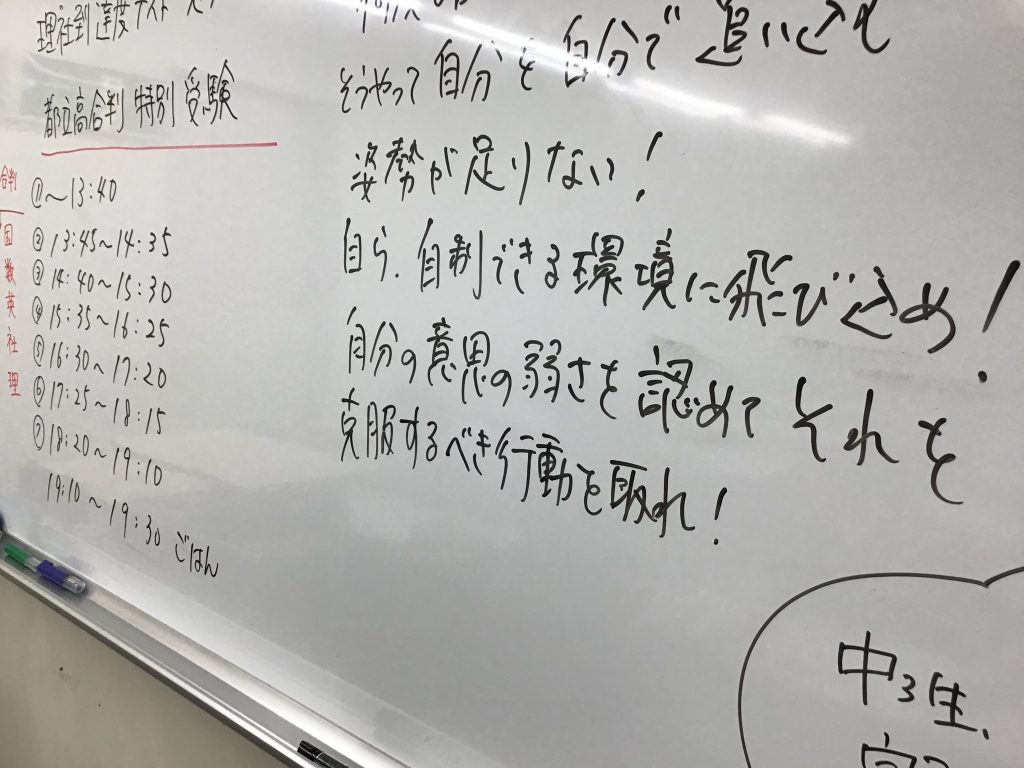 理社到達度テスト
都立高合判 特別受験
合判
国
数
英
社
理
①~13:40
②13:45~14:35
③14:40~15:30
④15:35~16:25
⑤16:30~17:20
⑥17:25~18:15
⑦18:20~19:10
19:10~19:30 ごはん
そうやって自分を自分で追い込む
姿勢が足りない!
自ら、自制できる環境に飛び込め!
自分の意思の弱さを認めてそれを
克服するべき行動を取れ!
中3生、